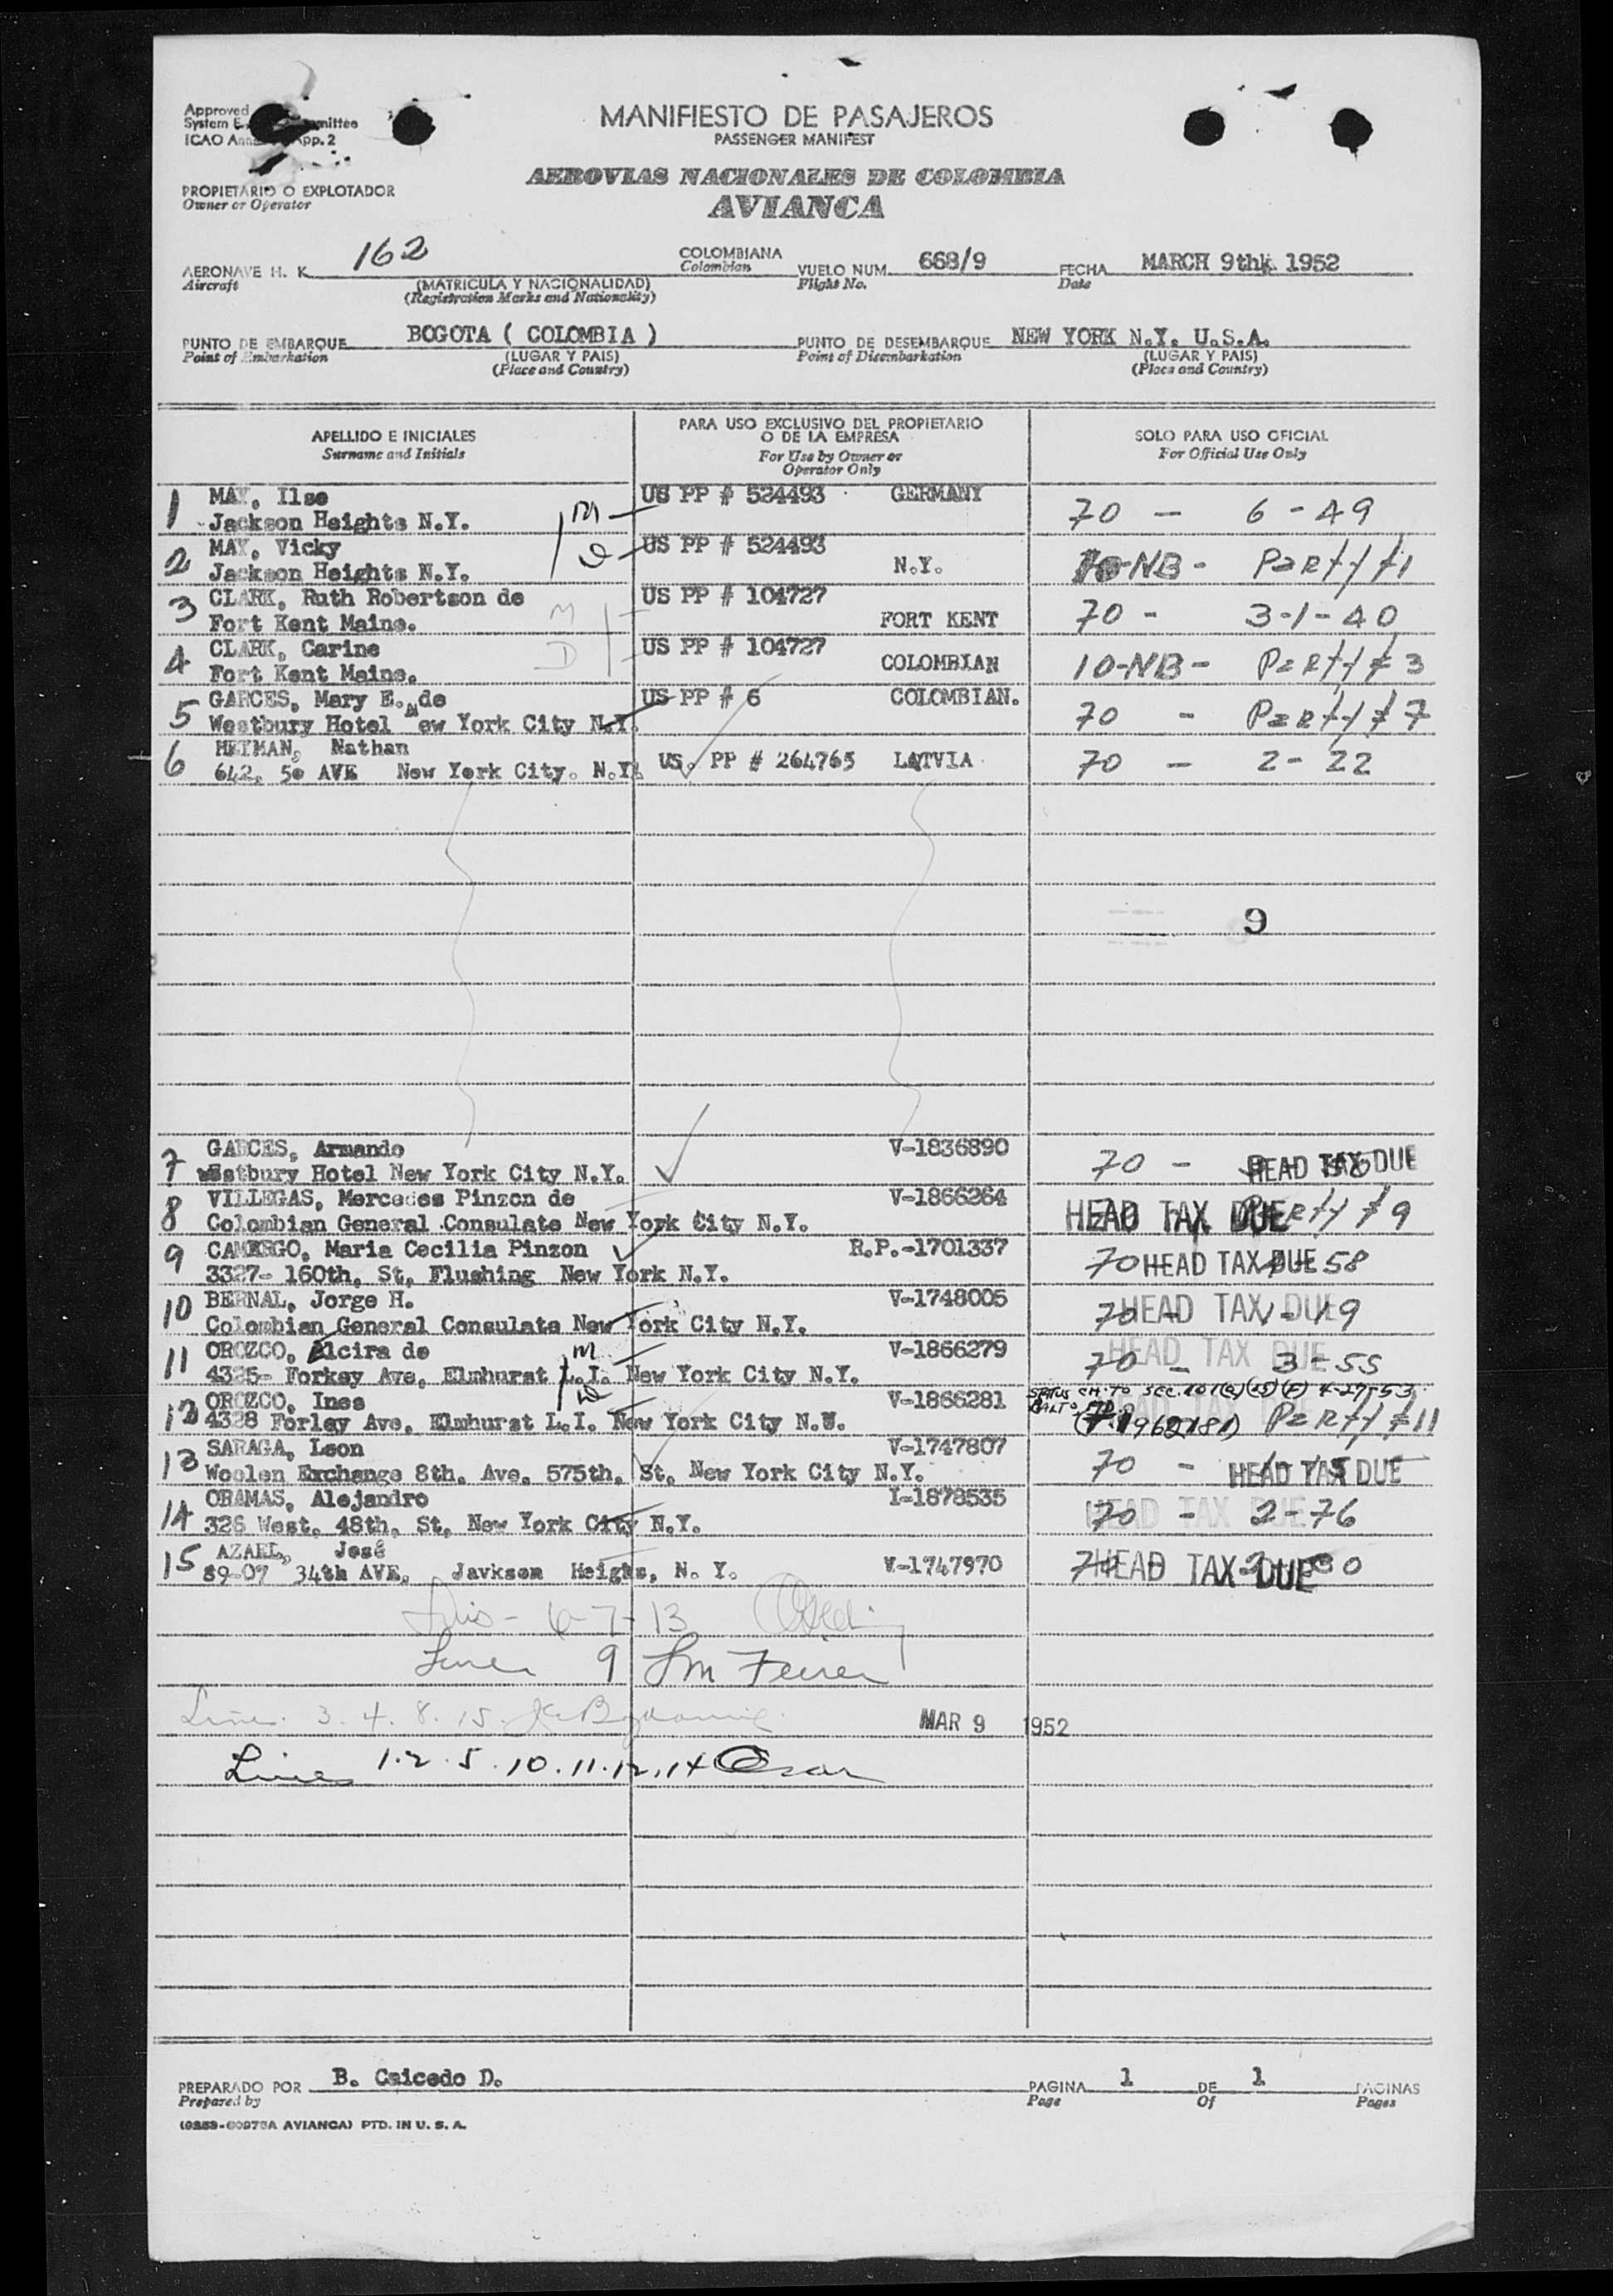 Approved
System E mittee
ICAO Ann App. 2
MANIFIESTO DE PASAJEROS
PASSENGER MANIFEST
AEROVIAS NACIONALES DE COLOMBIA
AVIANCA
PROPIETARIO O EXPLOTADOR
Owner or Operator
AERONAVE H. K. 162 COLOMBIANA VUELO NUM. 668/9 FECHA MARCH 9th. 1952
Aircraft (MATRICULA Y NACIONALIDAD) Colombian Flight No. Date
(Registration Marks and Nationality)
PUNTO DE EMBARQUE BOGOTA ( COLOMBIA ) PUNTO DE DESEMBARQUE NEW YORK N.Y. U.S.A.
Point of Embarkation (LUGAR Y PAIS) Point of Disembarkation (LUGAR Y PAIS)
(Place and Country) (Place and Country)
APELLIDO E INICIALES PARA USO EXCLUSIVO DEL PROPIETARIO O DE LA EMPRESA SOLO PARA USO OFICIAL
Surname and Initials For Use by Owner or Operator Only For Official Use Only
1 MAY, Ilse US PP # 524493 GERMANY
Jackson Heights N.Y. M 70 - 6-49
2 MAY, Vicky D US PP # 524493
Jackson Heights N.Y. N.Y. 10-NB- Party #1
3 CLARK, Ruth Robertson de US PP # 104727
Fort Kent Maine. M FORT KENT 70 - 3-1-40
4 CLARK, Carine US PP # 104727
Fort Kent Maine. D COLOMBIAN 10-NB- Party # 3
5 GARCES, Mary E. de US PP # 6 COLOMBIAN.
Westbury Hotel New York City N.Y. 70 - Party # 7
6 HEYMAN, Nathan
642, 5e AVE New York City. N.Y. US. PP # 264765 LATVIA 70 - 2-22
9
7 GARCES, Armando V-1836890
Westbury Hotel New York City N.Y. 70 - HEAD TAX DUE
8 VILLEGAS, Mercedes Pinzon de V-1866264
Colombian General Consulate New York City N.Y. HEAD TAX DUE Party # 9
9 CAMERGO, Maria Cecilia Pinzon R.P.-1701337
3327- 160th, St, Flushing New York N.Y. 70 HEAD TAX DUE 58
10 BERNAL, Jorge H. V-1748005
Colombian General Consulate New York City N.Y. 70 HEAD TAX DUE 1-19
11 OROZCO, Alcira de M V-1866279
4325- Forkey Ave, Elmhurst L.I. New York City N.Y. 70 - HEAD TAX DUE 3-55
12 OROZCO, Ines D V-1866281 STATUS CH. TO SEC. 101(a)(15)(F) 4-27-53
4328 Forley Ave, Elmhurst L.I. New York City N.Y. HEAD TAX Party #11
13 SARAGA, Leon V-1747807
Woolen Exchange 8th. Ave. 575th. St. New York City N.Y. 70 - HEAD TAX DUE
14 ORAMAS, Alejandro I-1878535
326 West. 48th. St, New York City N.Y. 70 - HEAD TAX DUE 2-76
15 AZAEL, José
89-07 34th AVE. Javkson Heighs, N. Y. V-1747970 70 HEAD TAX DUE
6-7-13
9
3. 4. 8. 15. MAR 9 1952
Lines 1.2.5.10.11.12.14
PREPARADO POR B. Caicedo D. PAGINA 1 DE 1 PAGINAS
Prepared by Page Of Pages
AVIANCA) PTD. IN U. S. A.